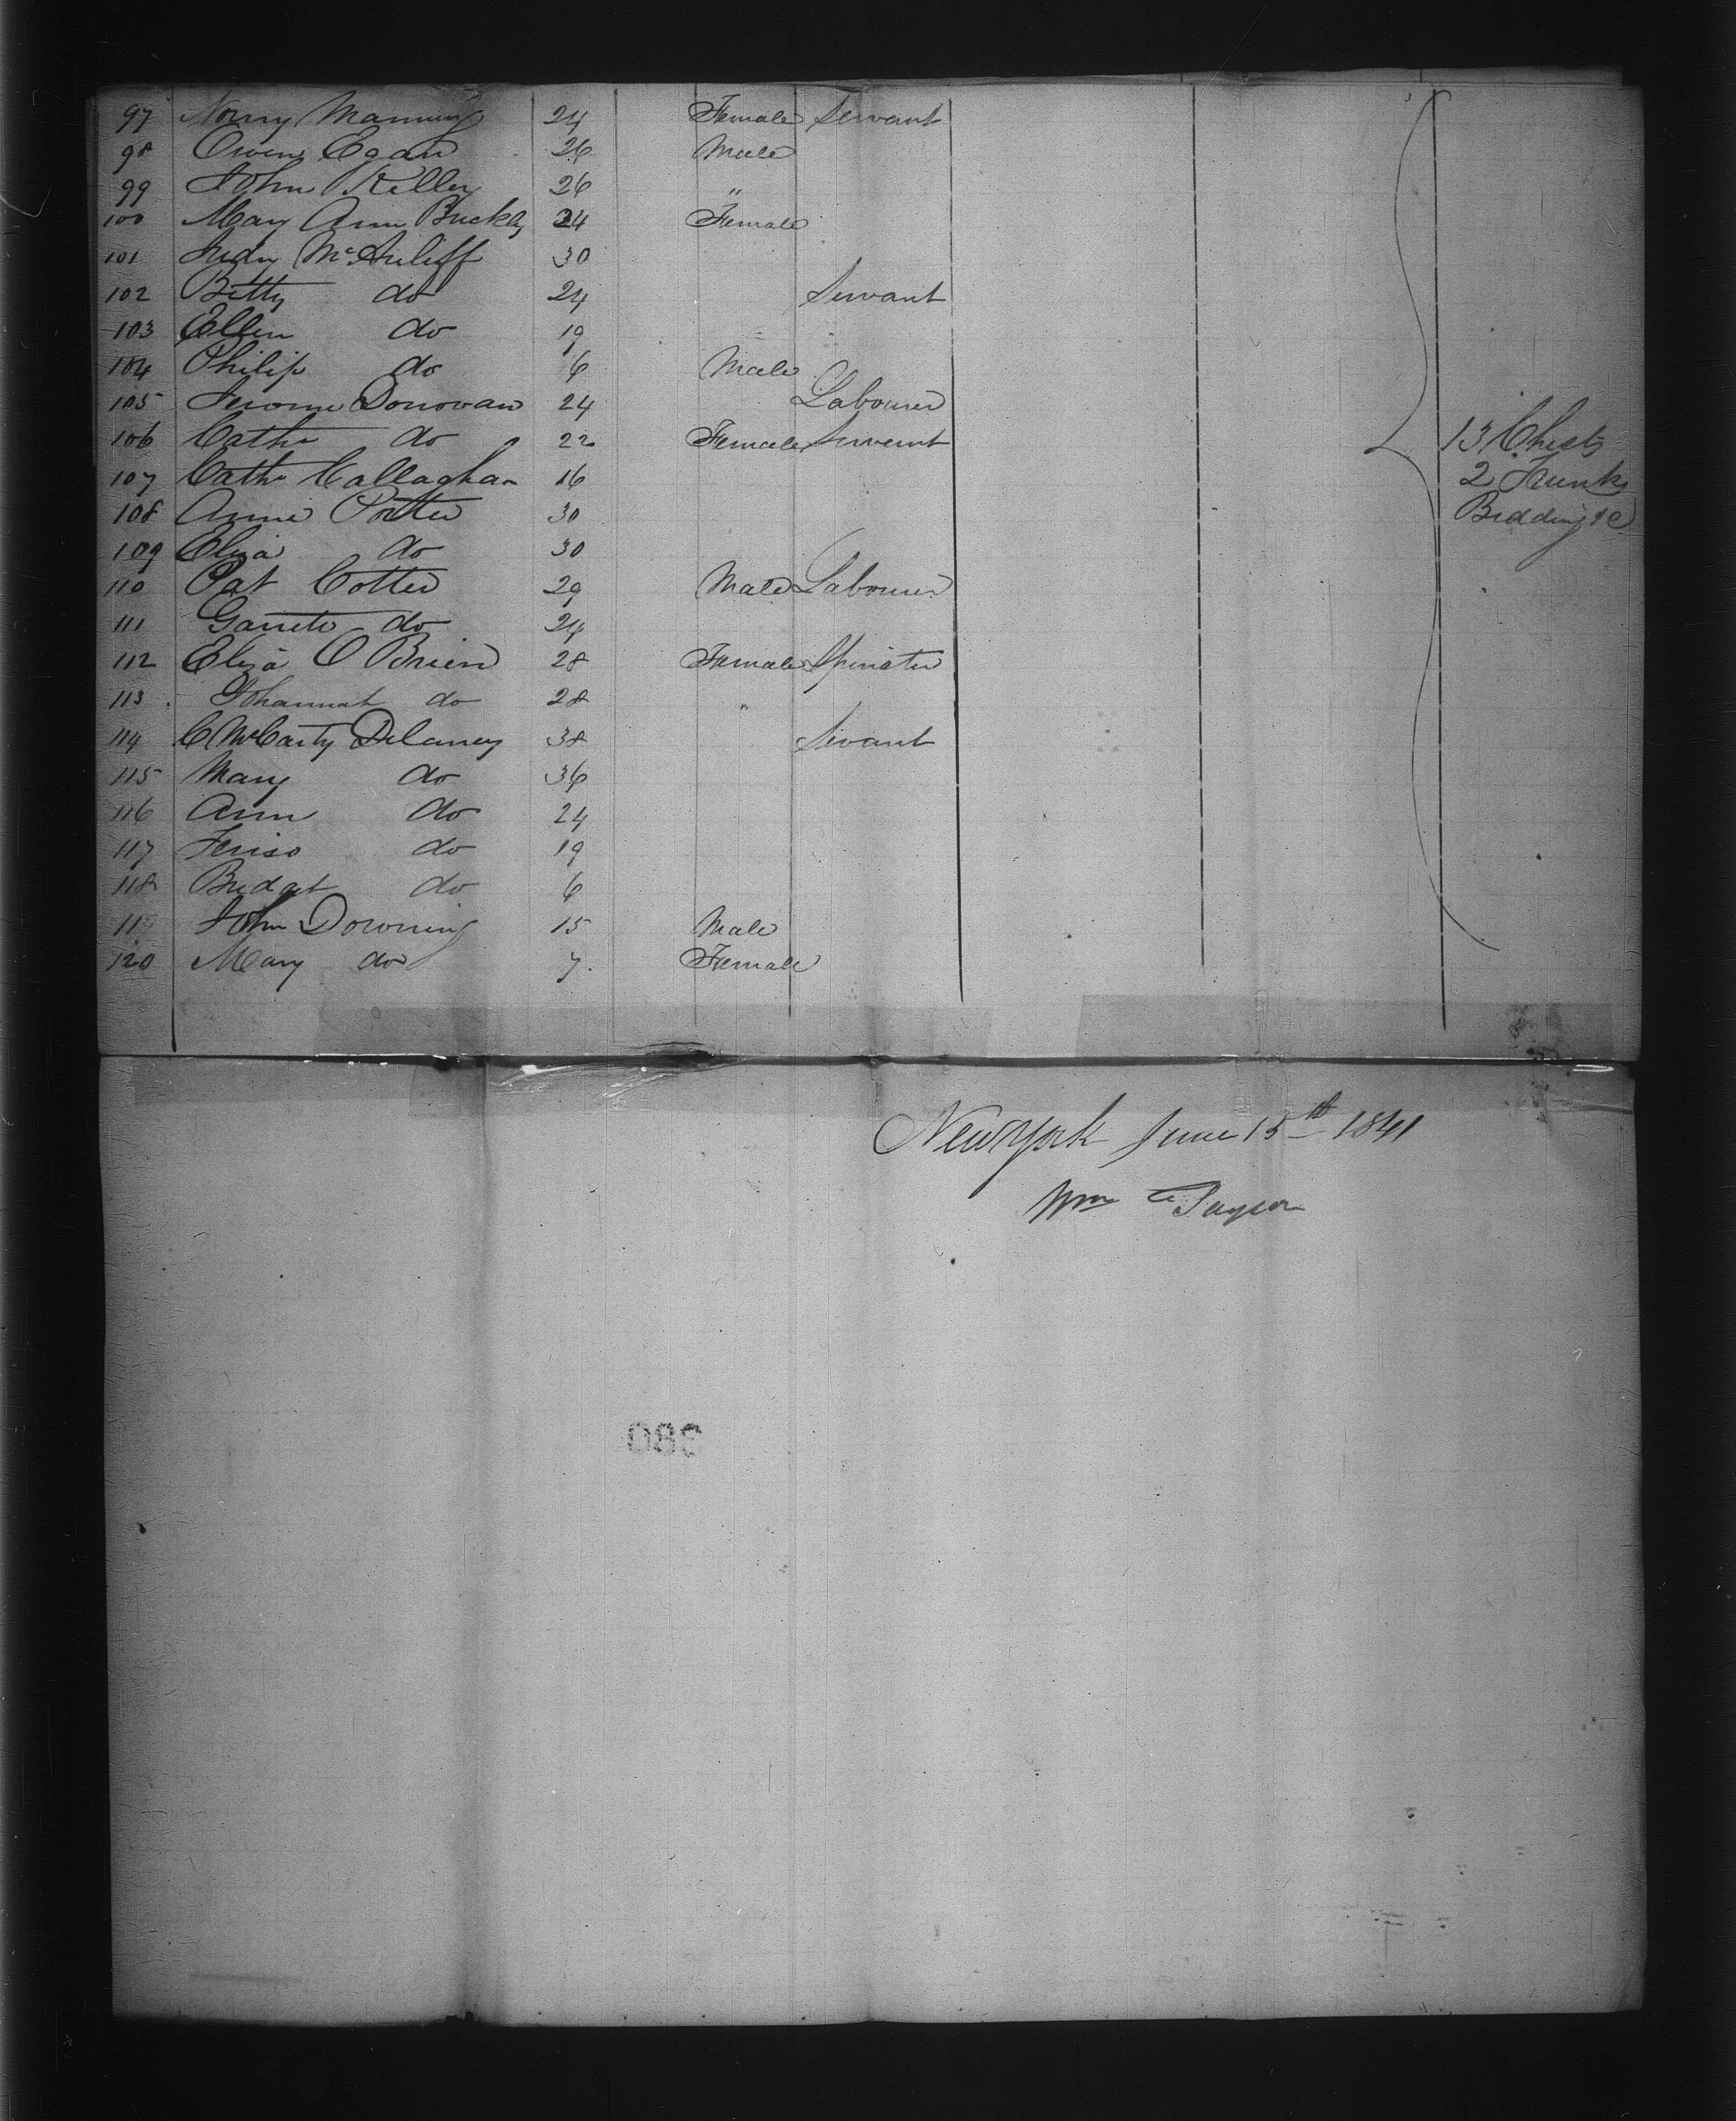 97 Norry Manning 24 Female Servant
98 Owen Egan 26 Male
99 John Kelley 26 "
100 Mary Ann Buckly 24 Female
101 Judy McAuliff 30
102 Betty do 24 Servant
103 Ellen do 19
104 Philip do 6 Male
105 Jerome Donovan 24 Labourer
106 Cathe do 22 Female Servant
107 Cathe Callaghan 16
108 Anne Potter 30
109 Eliza do 30
110 Pat Cotter 29 Male Labourer
111 Garrett do 24
112 Eliza O Brien 28 Female Spinster
113 Johannah do 28 "
114 C McCarty Delaney 38 Servant
115 Mary do 36
116 Ann do 24
117 do 19
118 Bridget do 6
119 John Downing 15 Male
120 Mary do 7. Female
13 Chests
2 Trunks
Bedding &c
New York June 15th 1841
Wm
380